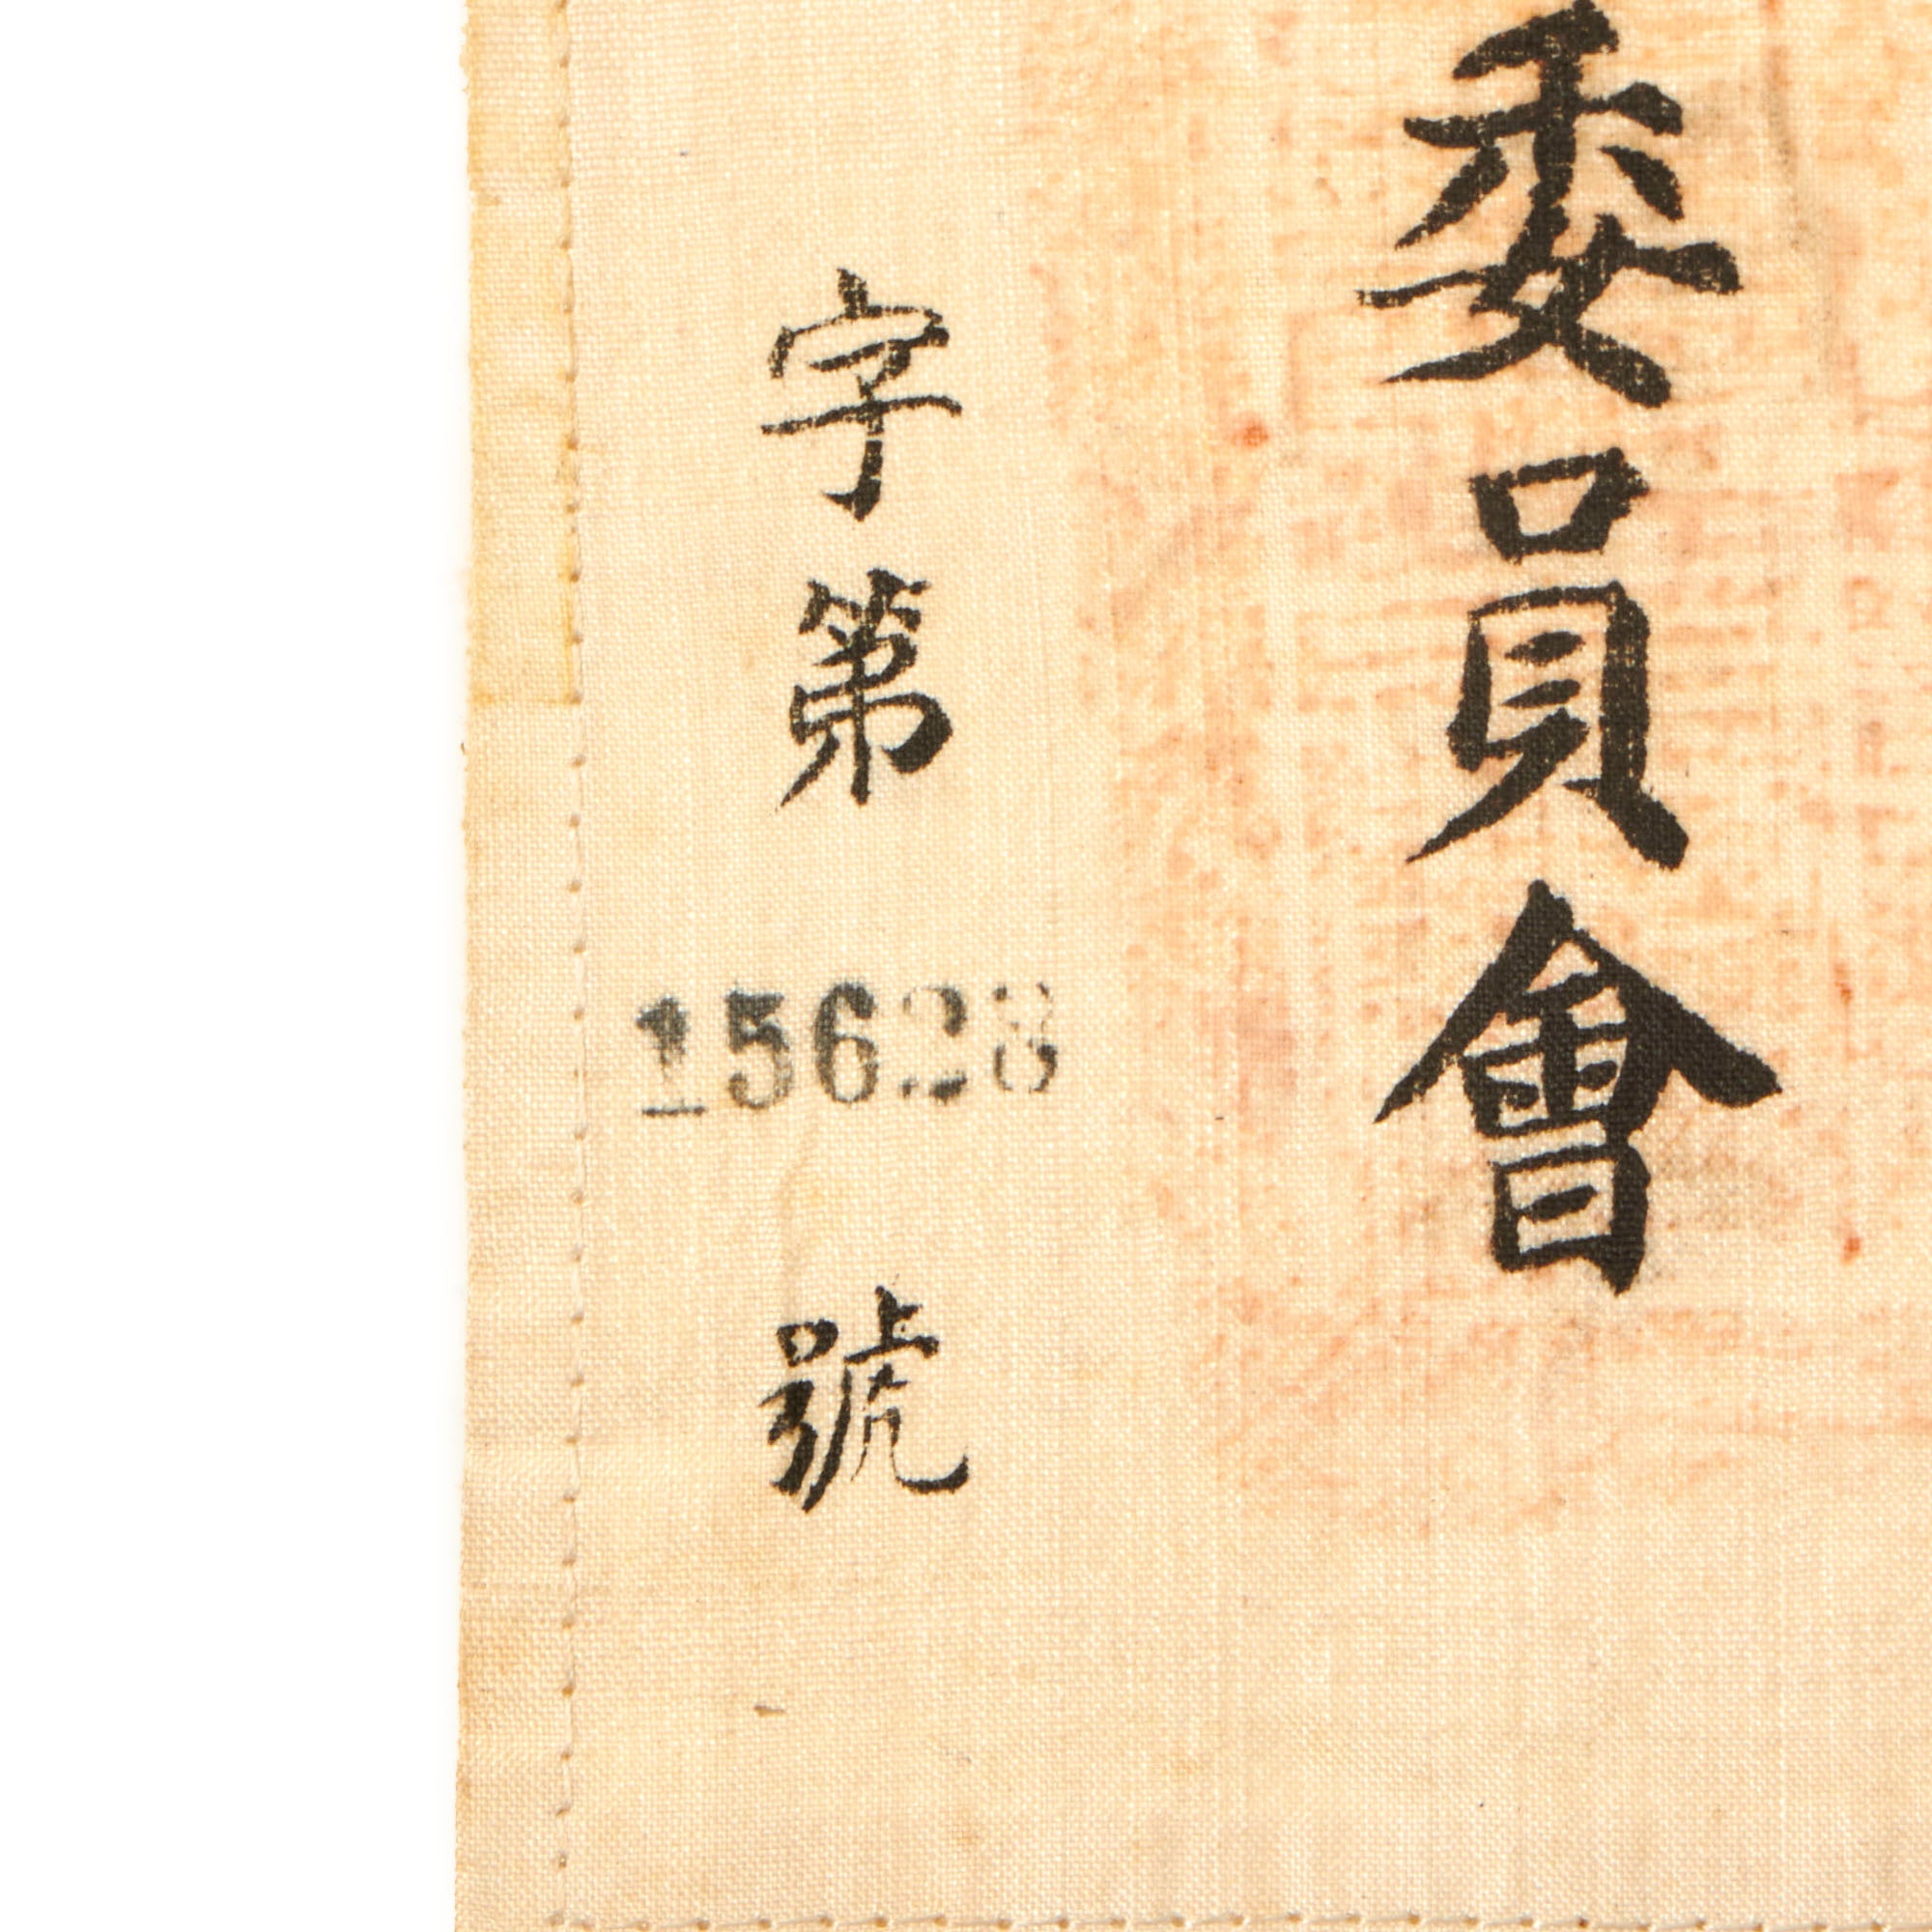 委員會
字第15628號